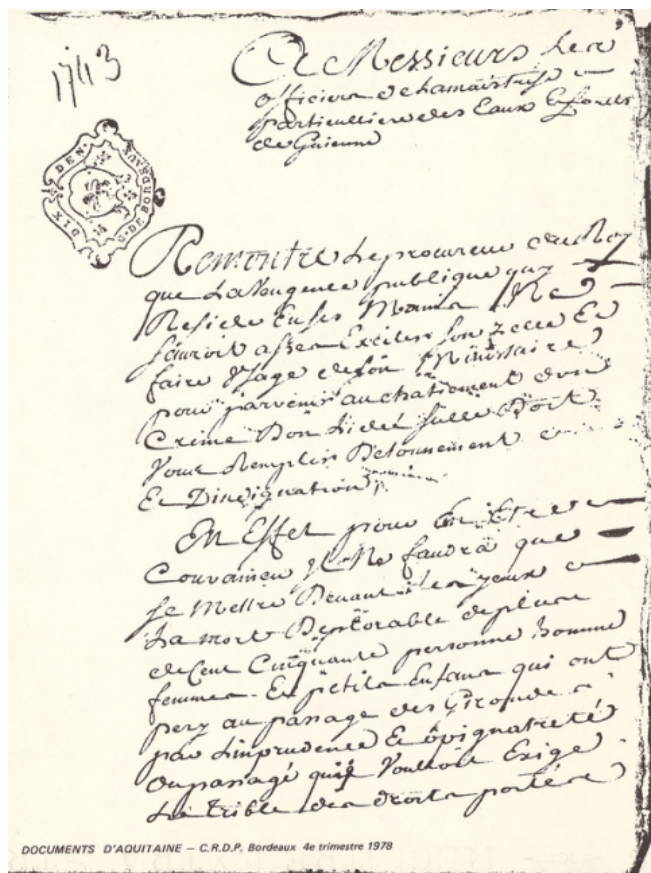 1743
A Messieurs Les
officiers de Lamaistrise
particulliere des Eaux Et forets
de Guienne
DIX DEN.
G. DE BORDEAUX
Remontre Le procureur du Roy
que La Vengence publique quy
Reside En ses Mains Ne
sauroit assez Exciter son zelle Et
faire Usage de son Ministaire
pour parvenir au chatiement d'un
Crime Don Lidée Sulle Doit
Vous Remplir Detonnement
Et Dindignation
En Effet pour En Etre
Convaincu yl Ne faudra que
se Mettre Devant Les yeux
La mort Deplorable de plus
de Cent Cinquante personne homme
femmes Et petits Enfans qui ont
pery au passage des Gironde
par Limprudence Et opignatreté
Du passagé quy Voulloit Exige
Le Trible des droits portés
DOCUMENTS D'AQUITAINE – C.R.D.P. Bordeaux 4e trimestre 1978